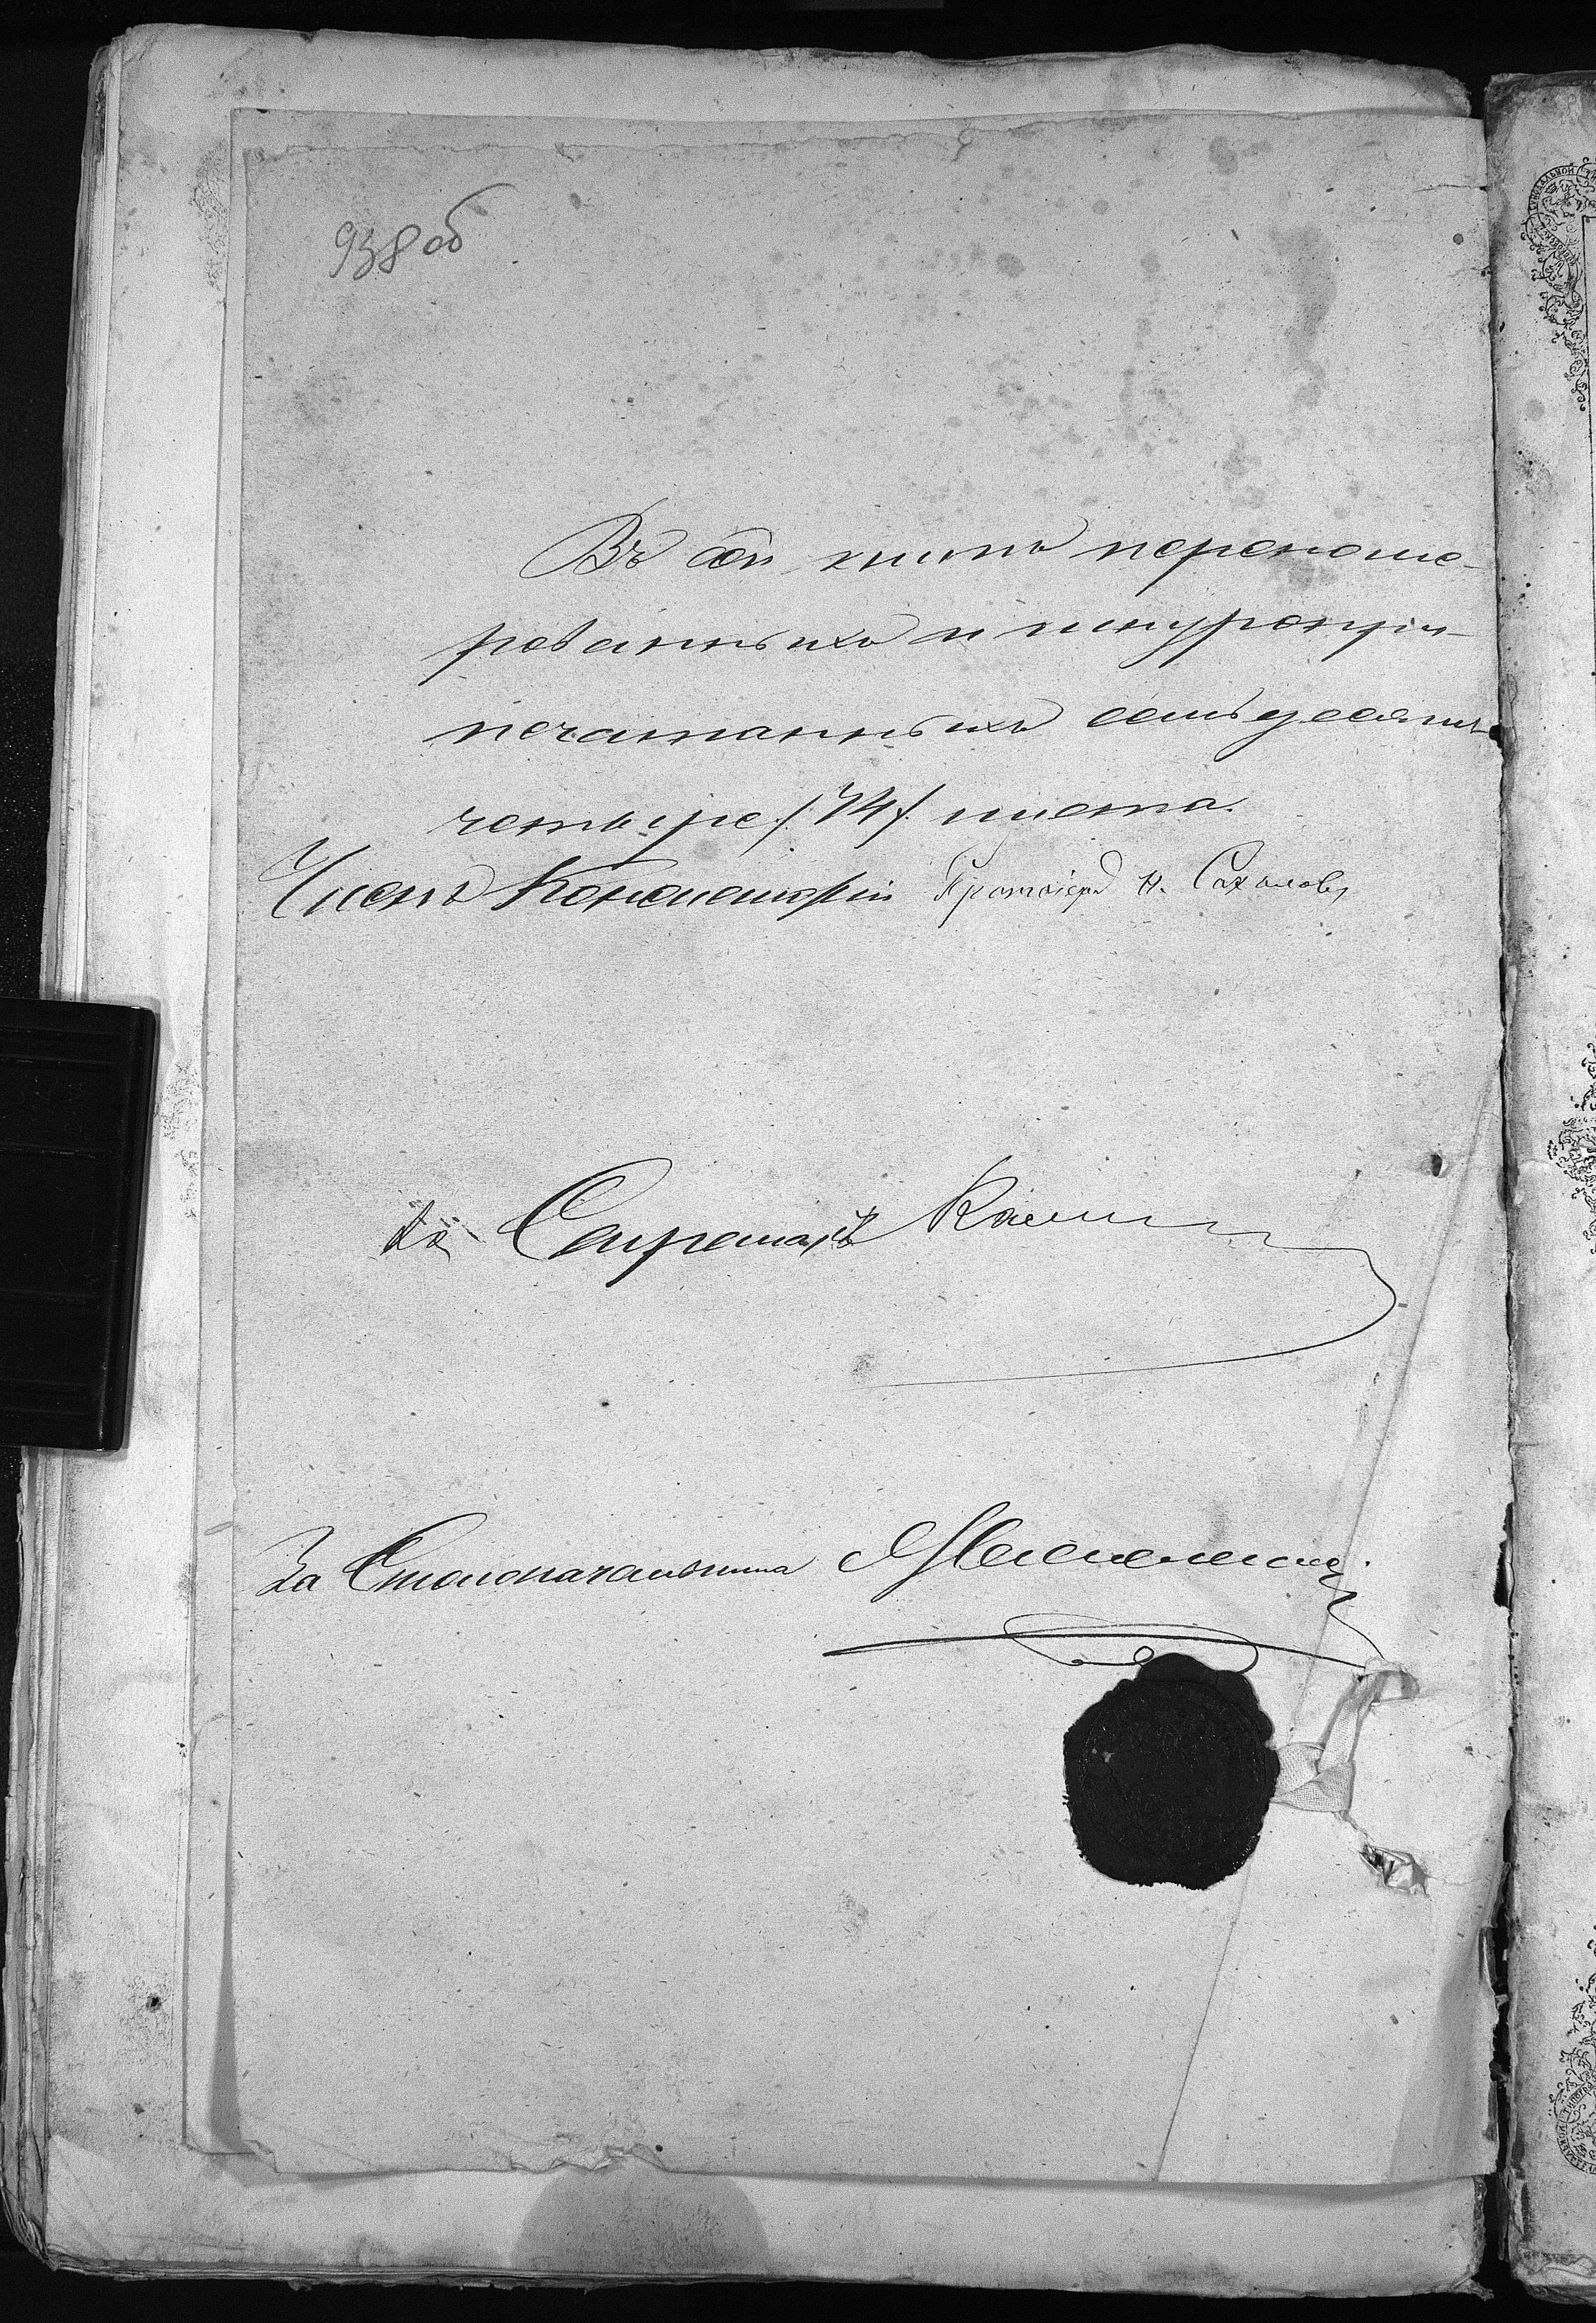 938об
Въ сей книгѣ перенуме-
рованныхъ и шнурозуп-
печатанныхъ семьдесятъ
четыре /:74:/ листа.
Членъ Консисторіи Протоіерей Н. Сахаровъ
За Секретаря
За Столоначальника